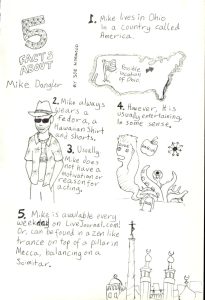 5
FACTS
ABOUT
Mike Dangler
1. Mike lives in Ohio
in a country called
America.
Possible
location
of Ohio
2. Mike always
wears a
fedora, a
Hawaiian Shirt
and shorts.
3. Usually,
Mike does not
have a
motivation or
reason for
acting.
4. However, it is
usually entertaining,
to some sense.
5. Mike is available every
weekend on LiveJournal.com!
Or, can be found in a zen like
trance on top of a pillar in
Mecca, balancing on a
Scimitar.